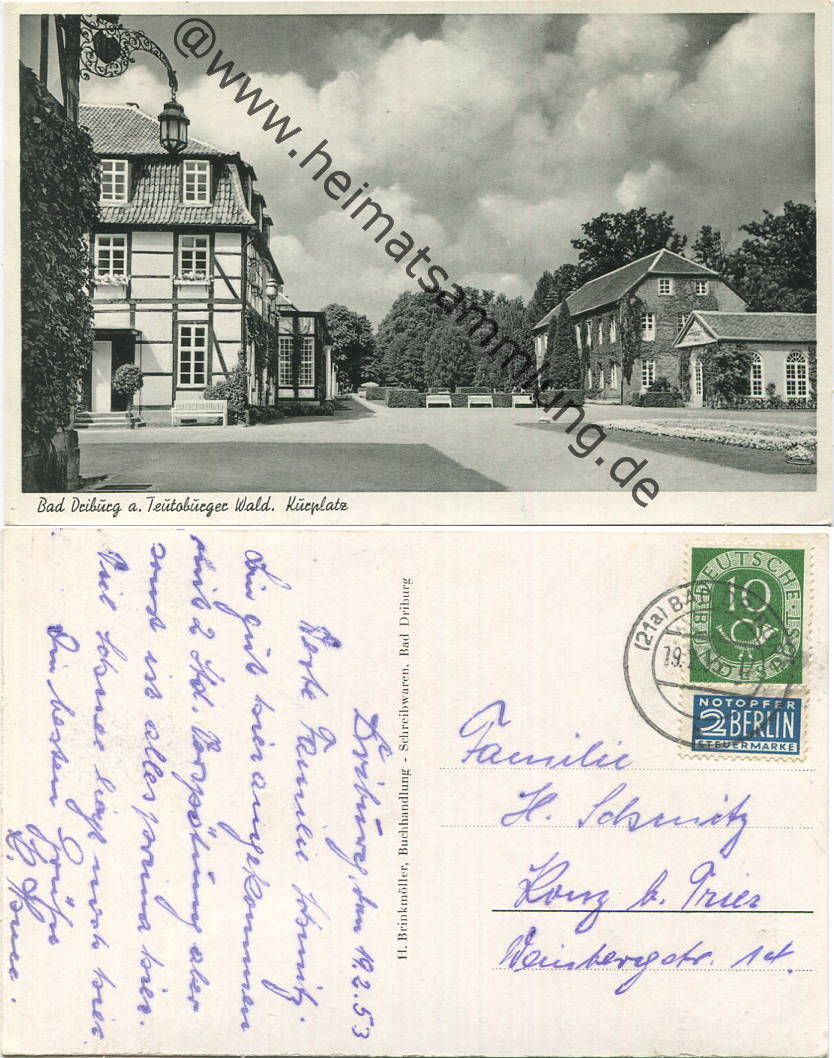 @www.heimatsammlung.de
Bad Driburg a. Teutoburger Wald. Kurplatz
Driburg, den 19.2.53
Werte Familie Schmitz.
Bin gut hier angekommen
mit 2 Std. Verspätung aber
sonst ist alles prima hier.
Viel Schnee liegt noch hier
Die besten Grüße
H. Brinkmöller, Buchhandlung - Schreibwaren, Bad Driburg
DEUTSCHE BUNDESPOST
10
(21a) BAD
19.2
NOTOPFER
2 BERLIN
STEUERMARKE
Familie
H. Schmitz
Konz b. Trier
Weinbergstr. 14.